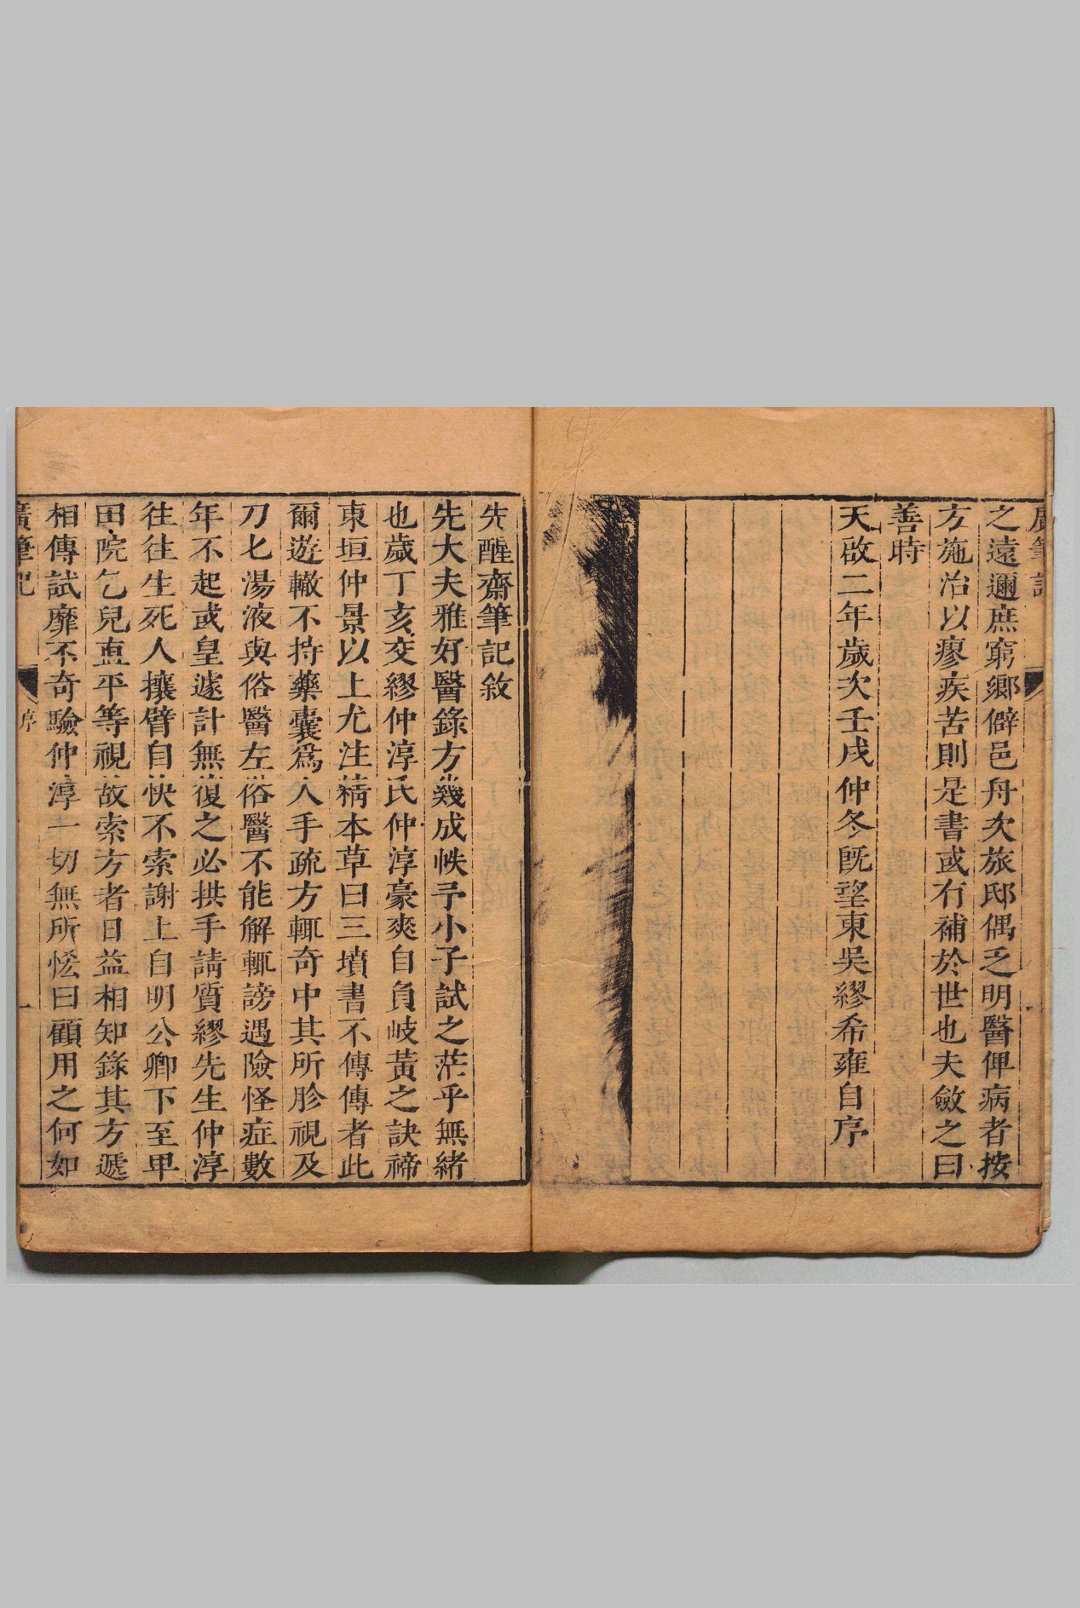 廣筆記
之遠邇庶窮鄉僻邑舟次旅邸偶乏明醫俾病者按
方施治以瘳疾苦則是書或有補於世也夫斂之曰
善時
天啟二年歲次壬戌仲冬既望東吳繆希雍自序
先醒齋筆記敘
先大夫雅好醫錄方幾成帙予小子試之茫乎無緒
也歲丁亥交繆仲淳氏仲淳豪爽自負岐黃之訣禘
東垣仲景以上尤注精本草曰三墳書不傳傳者此
爾遊轍不持藥囊為人手疏方輒奇中其所胗視及
刀匕湯液與俗醫左俗醫不能解輒謗遇險怪症數
年不起或皇遽計無復之必拱手請質繆先生仲淳
往往生死人攘臂自快不索謝上自明公卿下至卑
田院乞兒直平等視故索方者日益相知錄其方遞
相傳試靡不奇驗仲淳一切無所恡曰顧用之何如
廣筆記
序
一